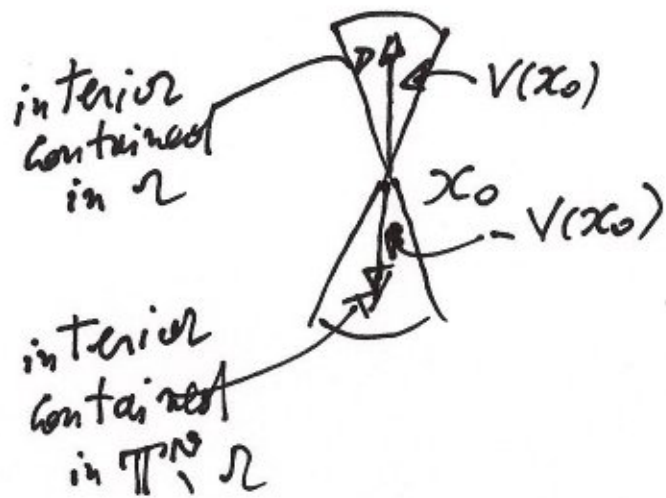 interior
contained
in Ω
V(x₀)
x₀
- V(x₀)
interior
contained
in ℝᴺ \ Ω